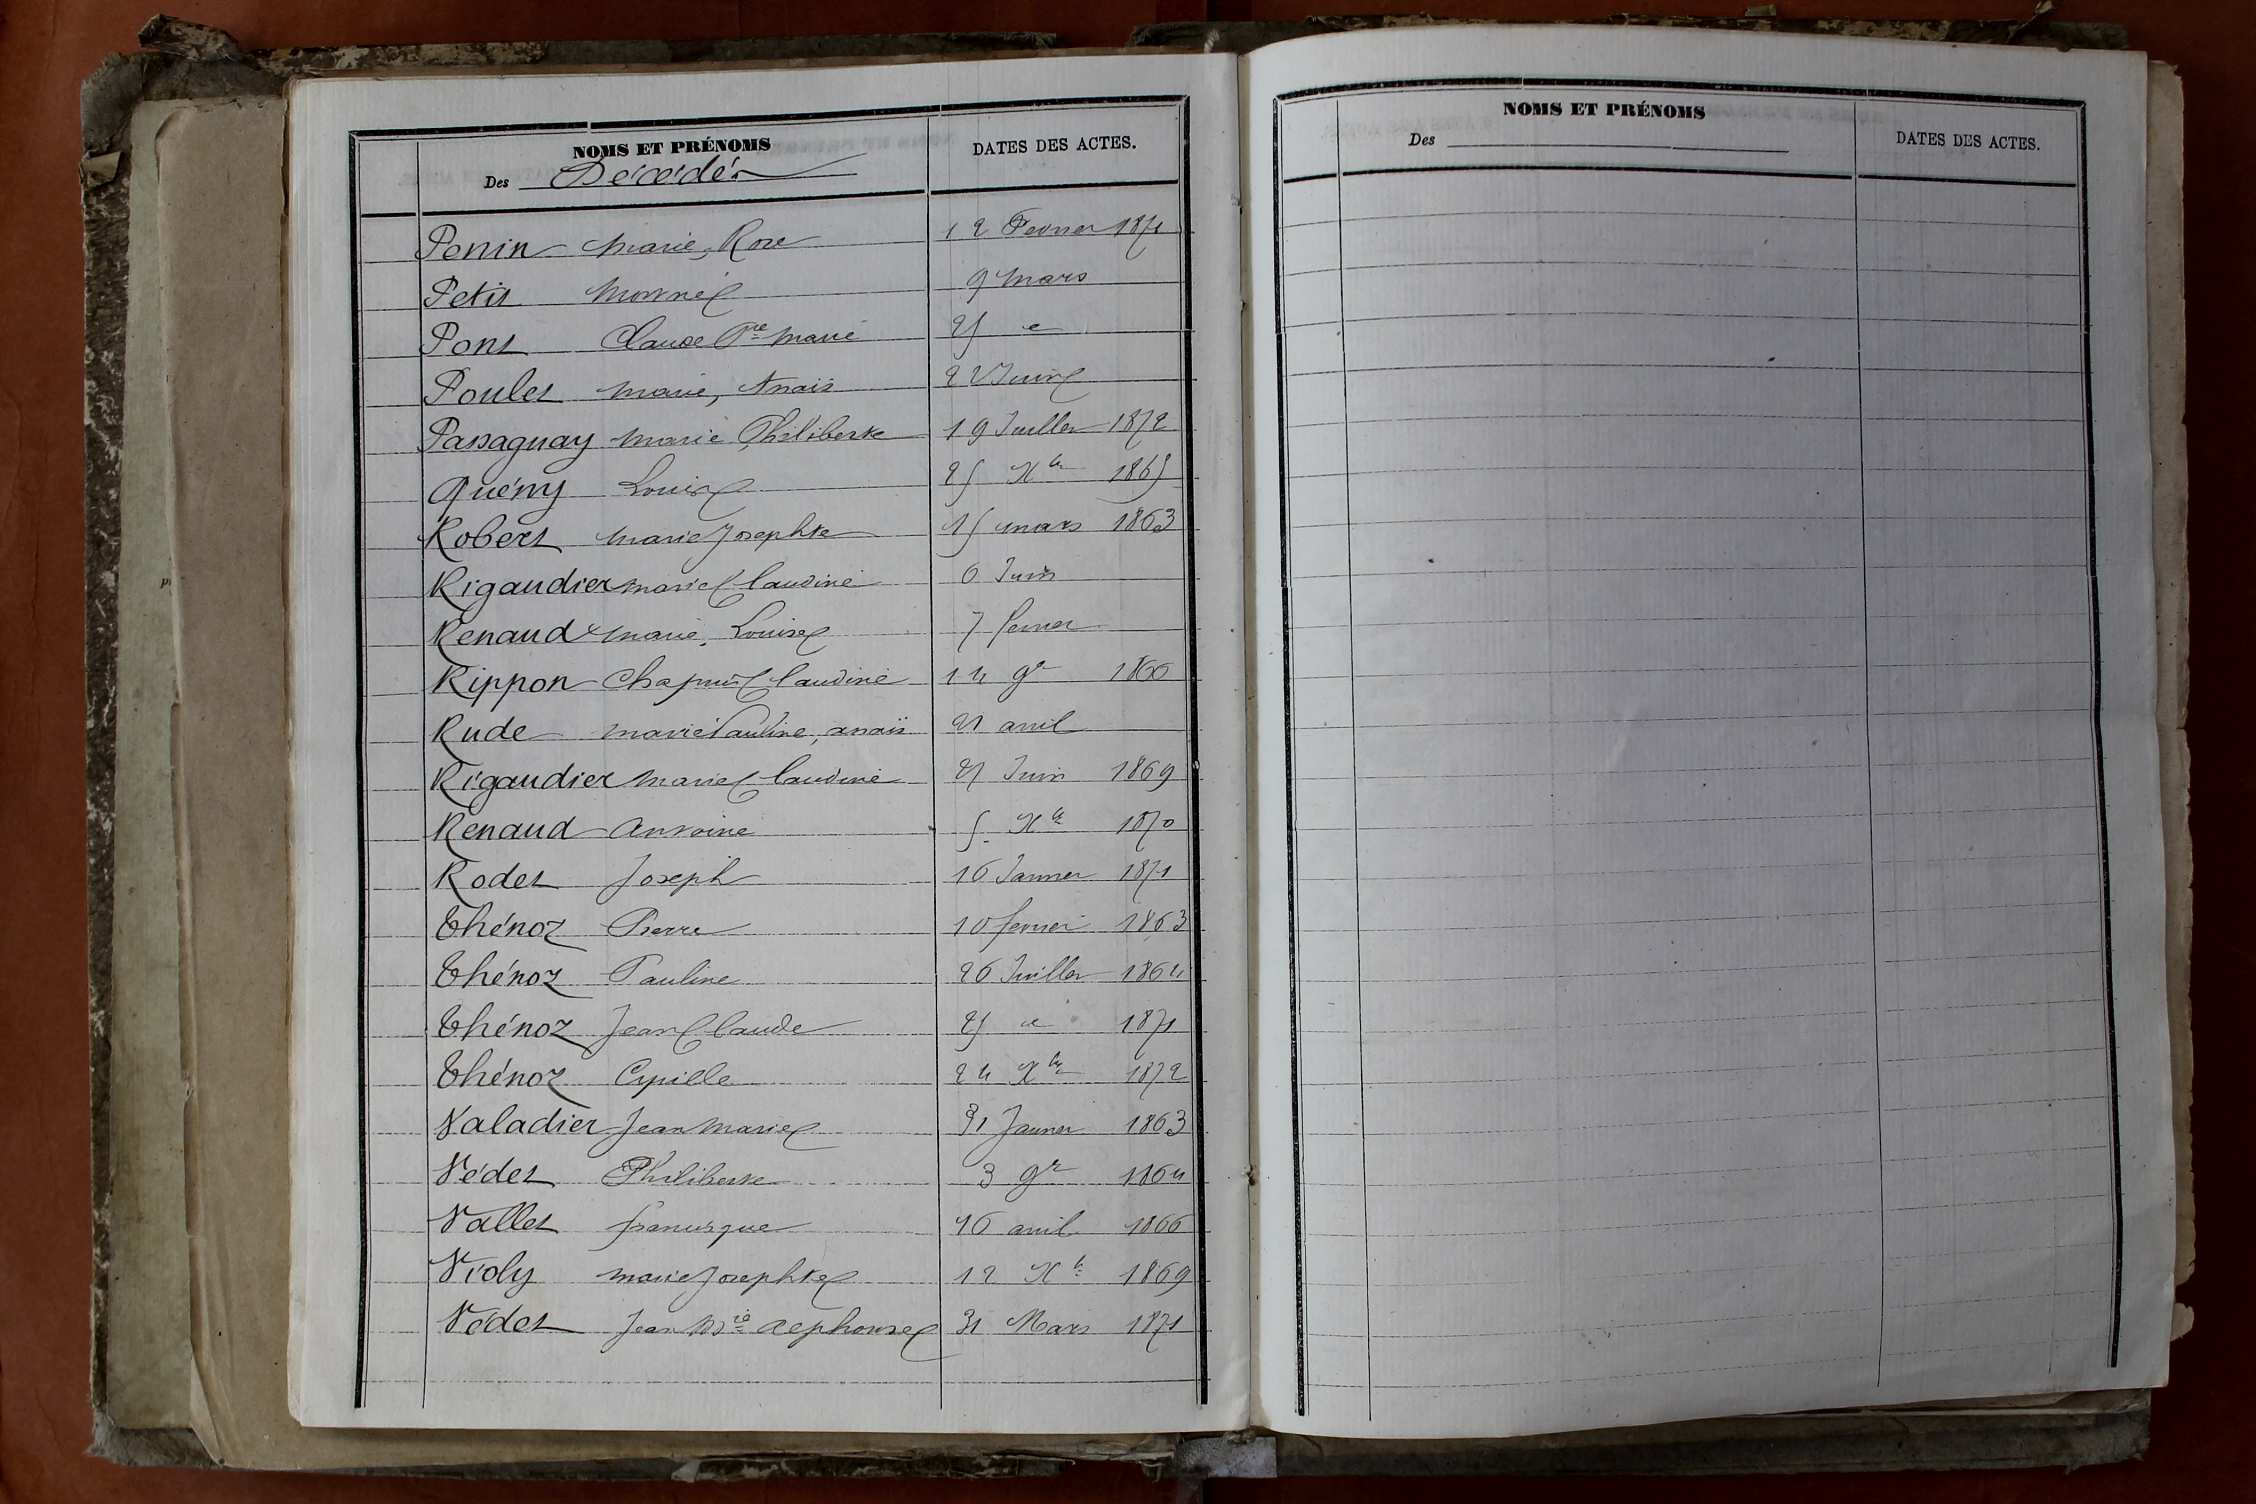 NOMS ET PRÉNOMS
Des Décédés
DATES DES ACTES.
Perrin Marie, Rose 12 Fevrier 1871
Petit Mort né 9 Mars
Pont Claude Pre Marie 25 "
Poulet Marie, Anaïs 2 Juin
Passaguay Marie Philiberte 19 Juillet 1872
Quérry Louise 25 Xbre 1865
Robert Marie Josephte 15 Mars 1863
Rigaudier Marie Claudine 6 Juin
Renaud Marie, Louise 7 fevrier
Rippon Chapuis Claudine 14 9re 1866
Rude Marie Pauline, anaïs 21 avril
Rigaudier Marie Claudine 27 Juin 1869
Renaud Antoine 5 Xbre 1870
Rodet Joseph 16 Janvier 1871
Thénoz Pierre 10 fevrier 1863
Thénoz Pauline 26 Juillet 1864
Thénoz Jean Claude 25 " 1871
Thénoz Cyrille 24 Xbre 1872
Valadier Jean Marie 31 Janvier 1863
Védet Philiberte 3 9re 1864
Vallet francisque 16 avril 1866
Violy Marie Josephte 12 Xbre 1869
Védet Jean Mie Alphonse 31 Mars 1871
NOMS ET PRÉNOMS
Des
DATES DES ACTES.